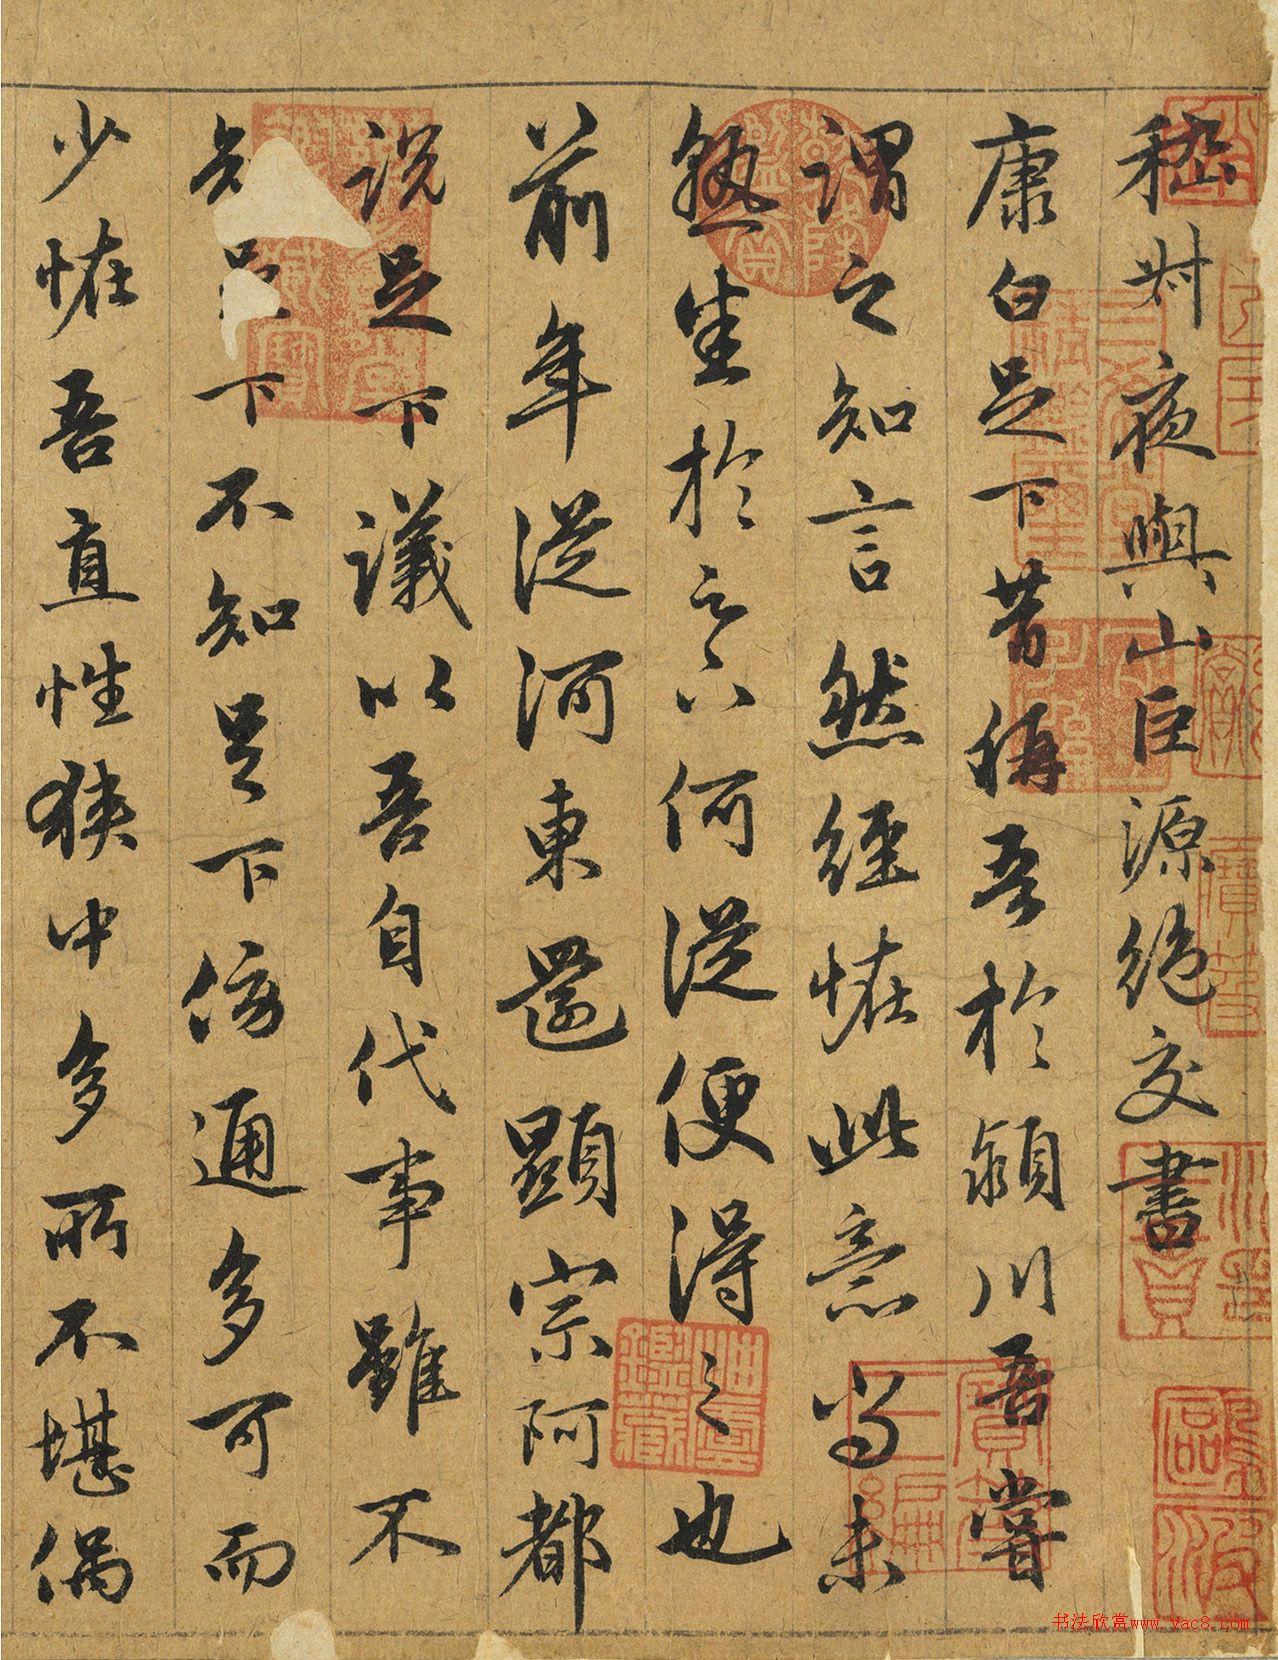 嵇叔夜與山巨源絕交書
康白足下昔稱吾於潁川吾嘗
謂之知言然經怪此意尚未
熟悉於足下何從便得之也
前年從河東還顯宗阿都
說足下議以吾自代事雖不
知足下不知足下傍通多可而
少怪吾直性狹中多所不堪偶
三希堂精鑑璽
宜子孫
寶笈三編
书法欣赏www.yac8.com